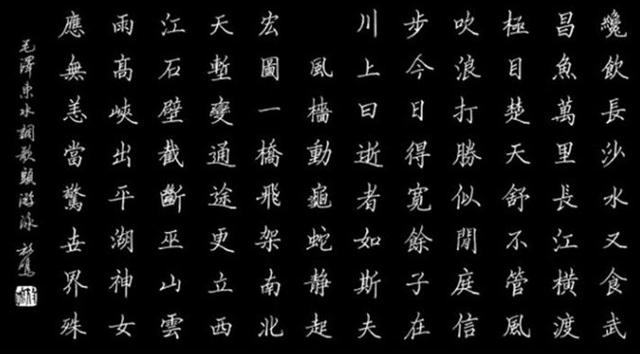 纔飲長沙水又食武
昌魚萬里長江橫渡
極目楚天舒不管風
吹浪打勝似閒庭信
步今日得寬餘子在
川上曰逝者如斯夫
風檣動龜蛇靜起
宏圖一橋飛架南北
天塹變通途更立西
江石壁截斷巫山雲
雨高峽出平湖神女
應無恙當驚世界殊
毛澤東水調歌頭游泳